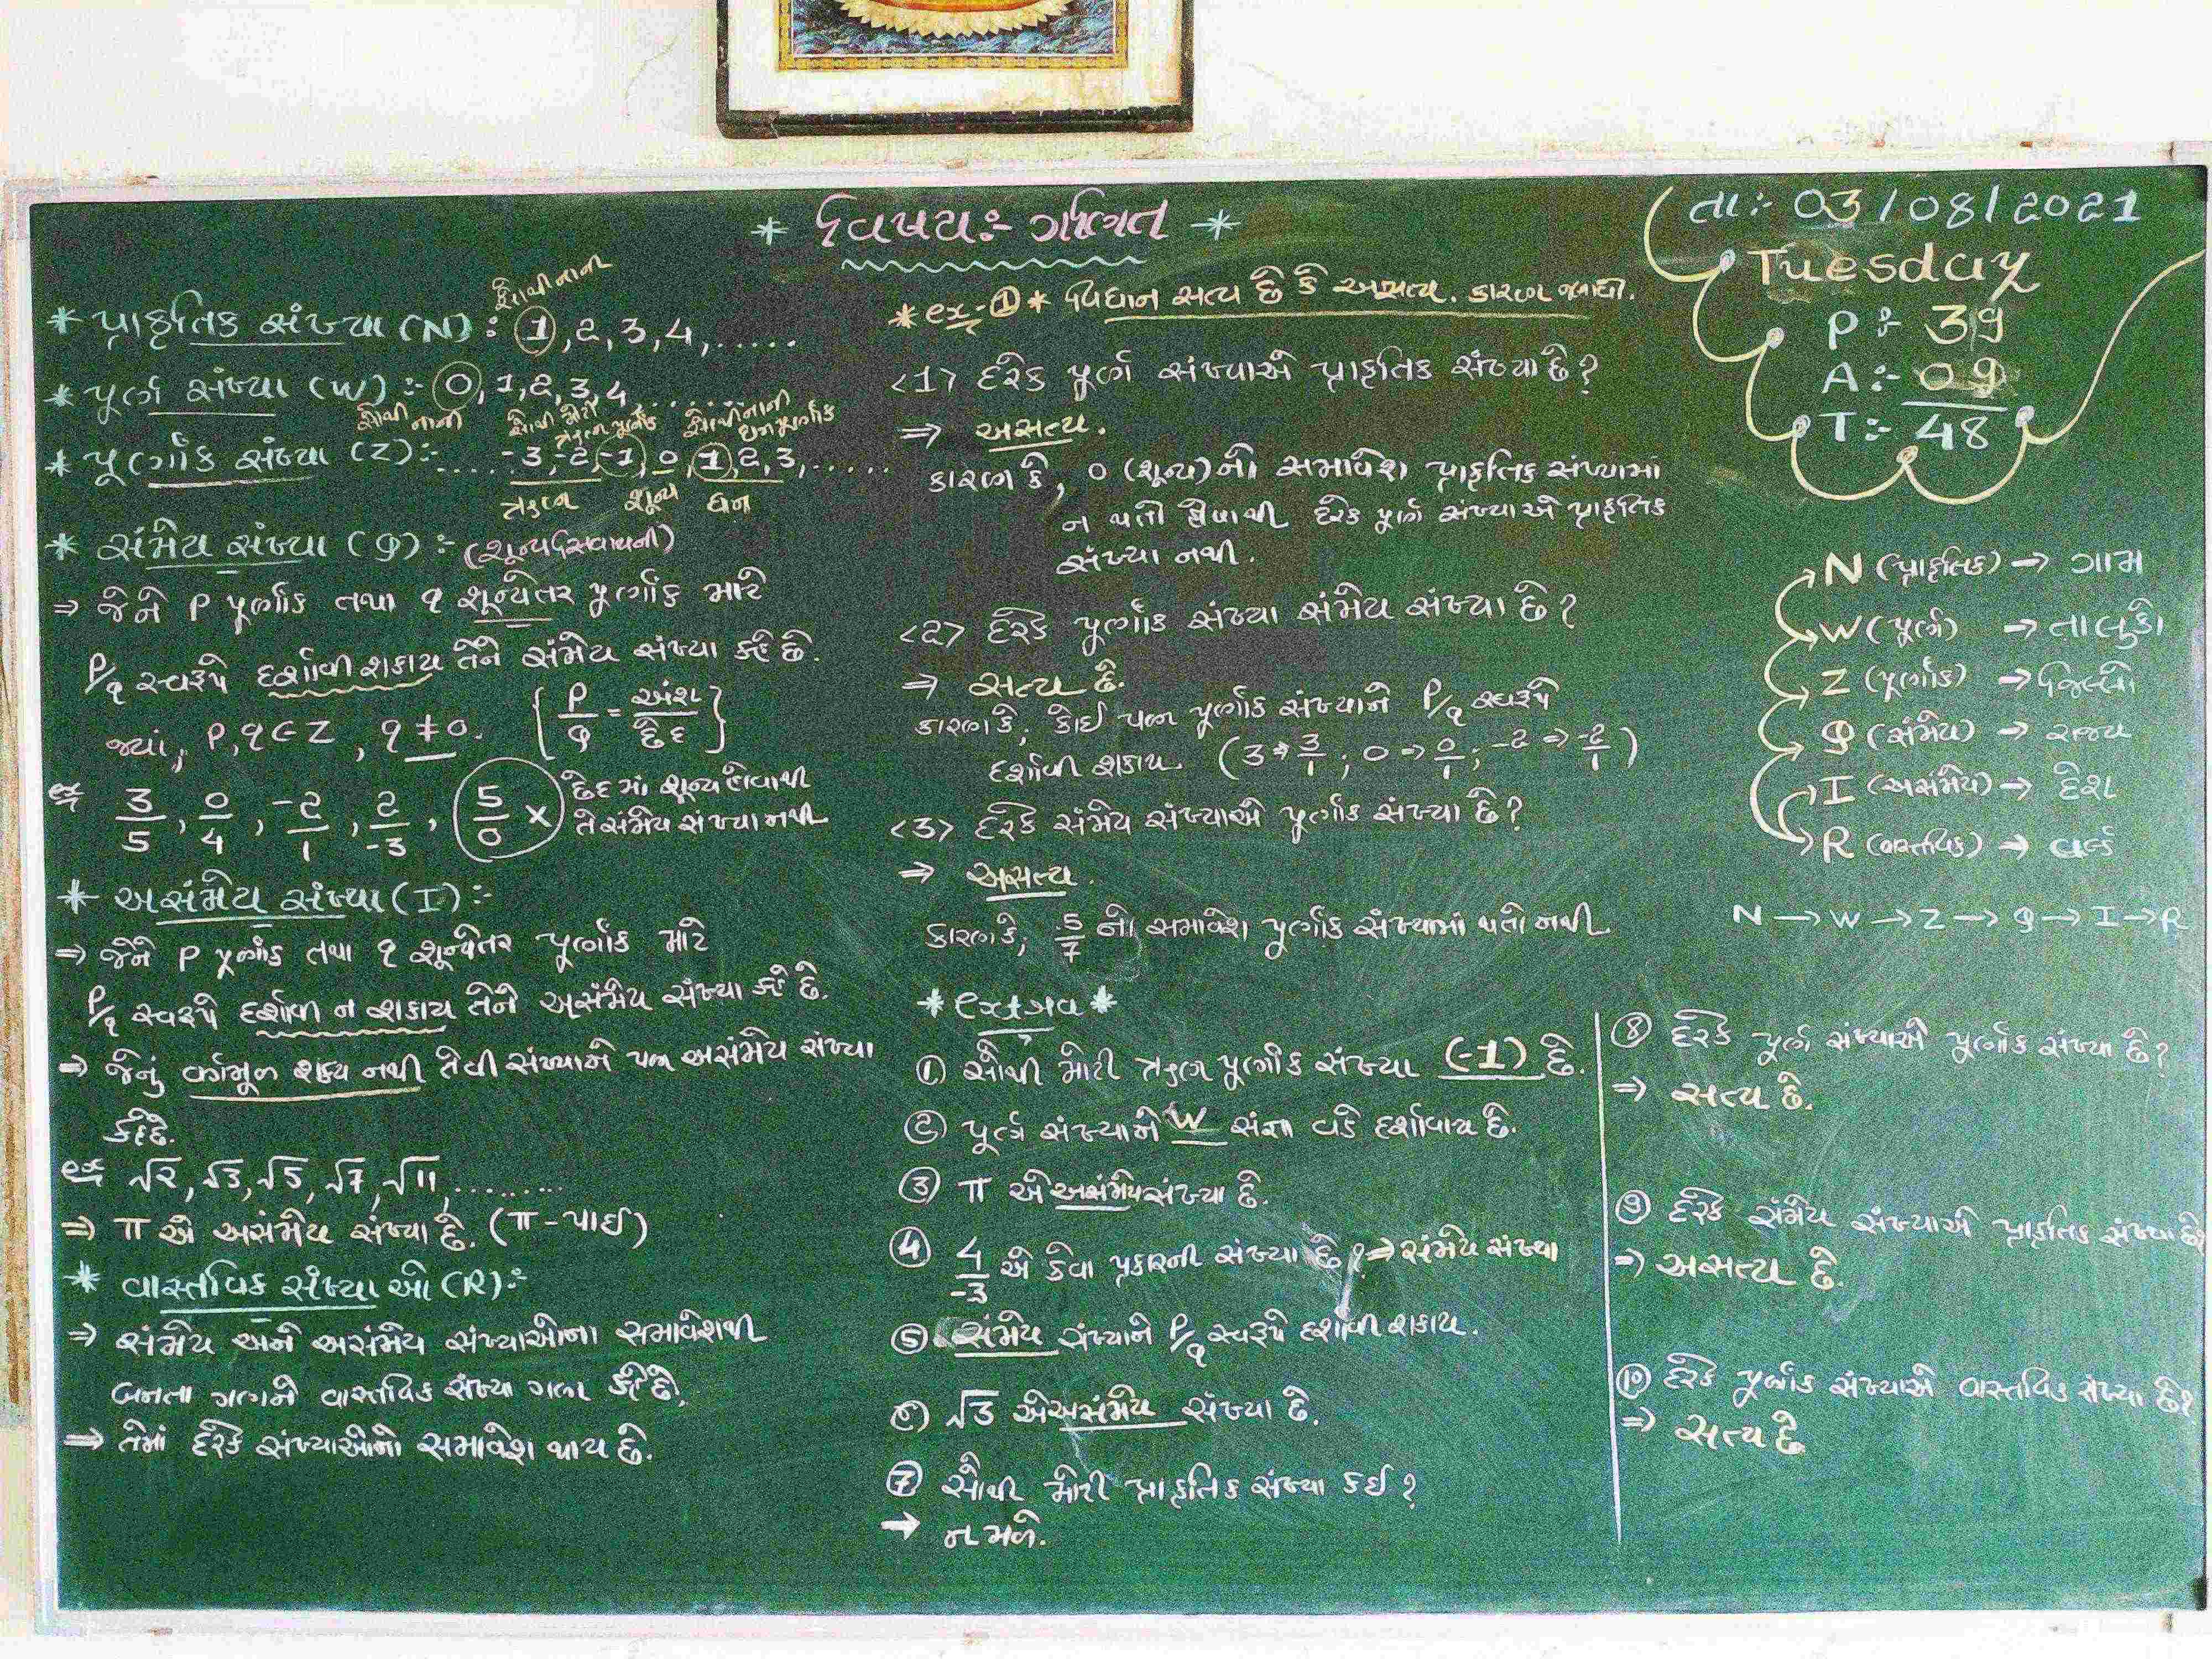 * વિષય:- ગણિત *
તા:- 03/08/2021
Tuesday
P:- 39
A:- 09
T:- 48
સૌથી નાની
* પ્રાકૃતિક સંખ્યા (N) : 1, 2, 3, 4, .....
* પૂર્ણ સંખ્યા (W) :- 0, 1, 2, 3, 4, ........
સૌથી નાની સૌથી મોટી ત્રઋણ પૂર્ણાંક સૌથી નાની ધન પૂર્ણાંક
* પૂર્ણાંક સંખ્યા (Z) :- ..... -3, -2, -1, 0, 1, 2, 3, ......
ઋણ શૂન્ય ધન
* સંમેય સંખ્યા (Q) :- (શૂન્ય સિવાયની)
⇒ જેને P પૂર્ણાંક તથા q શૂન્યેતર પૂર્ણાંક માટે
P/q સ્વરૂપે દર્શાવી શકાય તેને સંમેય સંખ્યા કહે છે.
જ્યાં, P, q ∈ Z, q ≠ 0. [P/Q = અંશ/છેદ]
ex 3/5, 0/4, -2/1, 2/-3, 5/0 × છેદમાં શૂન્ય હોવાથી
તે સંમેય સંખ્યા નથી
* અસંમેય સંખ્યા (I) :-
⇒ જેને P પૂર્ણાંક તથા q શૂન્યેતર પૂર્ણાંક માટે
P/q સ્વરૂપે દર્શાવી ન શકાય તેને અસંમેય સંખ્યા કહે છે.
⇒ જેનું વર્ગમૂળ શક્ય નથી તેવી સંખ્યાને પણ અસંમેય સંખ્યા
કહે છે.
ex √2, √3, √5, √7, √11, .........
⇒ π એ અસંમેય સંખ્યા છે. (π - પાઈ)
* વાસ્તવિક સંખ્યાઓ (R) :-
⇒ સંમેય અને અસંમેય સંખ્યાઓના સમાવેશથી
બનતા ગણને વાસ્તવિક સંખ્યા ગણ કહે છે.
⇒ તેમાં દરેક સંખ્યાઓનો સમાવેશ થાય છે.
* ex-① * વિધાન સત્ય છે કે અસત્ય. કારણ જણાવો.
<1> દરેક પૂર્ણ સંખ્યાએ પ્રાકૃતિક સંખ્યા છે?
⇒ અસત્ય.
કારણ કે, 0 (શૂન્ય) નો સમાવેશ પ્રાકૃતિક સંખ્યામાં
ન થતો હોવાથી દરેક પૂર્ણ સંખ્યા એ પ્રાકૃતિક
સંખ્યા નથી.
<2> દરેક પૂર્ણાંક સંખ્યા સંમેય સંખ્યા છે?
⇒ સત્ય છે.
કારણ કે, કોઈ પણ પૂર્ણાંક સંખ્યાને P/q સ્વરૂપે
દર્શાવી શકાય. (3 ⇒ 3/1 ; 0 ⇒ 0/1 ; -2 ⇒ -2/1)
<3> દરેક સંમેય સંખ્યાએ પૂર્ણાંક સંખ્યા છે?
⇒ અસત્ય.
કારણ કે, 5/7 નો સમાવેશ પૂર્ણાંક સંખ્યામાં થતો નથી.
N (પ્રાકૃતિક) → ગામ
W (પૂર્ણ) → તાલુકો
Z (પૂર્ણાંક) → જિલ્લો
Q (સંમેય) → રાજ્ય
I (અસંમેય) → દેશ
R (વાસ્તવિક) → વર્લ્ડ
N → W → Z → Q → I → R
① સૌથી મોટી ઋણ પૂર્ણાંક સંખ્યા (-1) છે.
② પૂર્ણ સંખ્યાને W સંજ્ઞા વડે દર્શાવાય છે.
③ π એ અસંમેય સંખ્યા છે.
④ 4/-3 એ કેવા પ્રકારની સંખ્યા છે? ⇒ સંમેય સંખ્યા
⑤ સંમેય સંખ્યાને P/q સ્વરૂપે દર્શાવી શકાય.
⑥ √3 એ અસંમેય સંખ્યા છે.
⑦ સૌથી મોટી પ્રાકૃતિક સંખ્યા કઈ?
→ ન મળે.
⑧ દરેક પૂર્ણ સંખ્યાએ પૂર્ણાંક સંખ્યા છે?
⇒ સત્ય છે.
⑨ દરેક સંમેય સંખ્યાએ પ્રાકૃતિક સંખ્યા છે?
⇒ અસત્ય છે.
⑩ દરેક પૂર્ણાંક સંખ્યાએ વાસ્તવિક સંખ્યા છે?
⇒ સત્ય છે